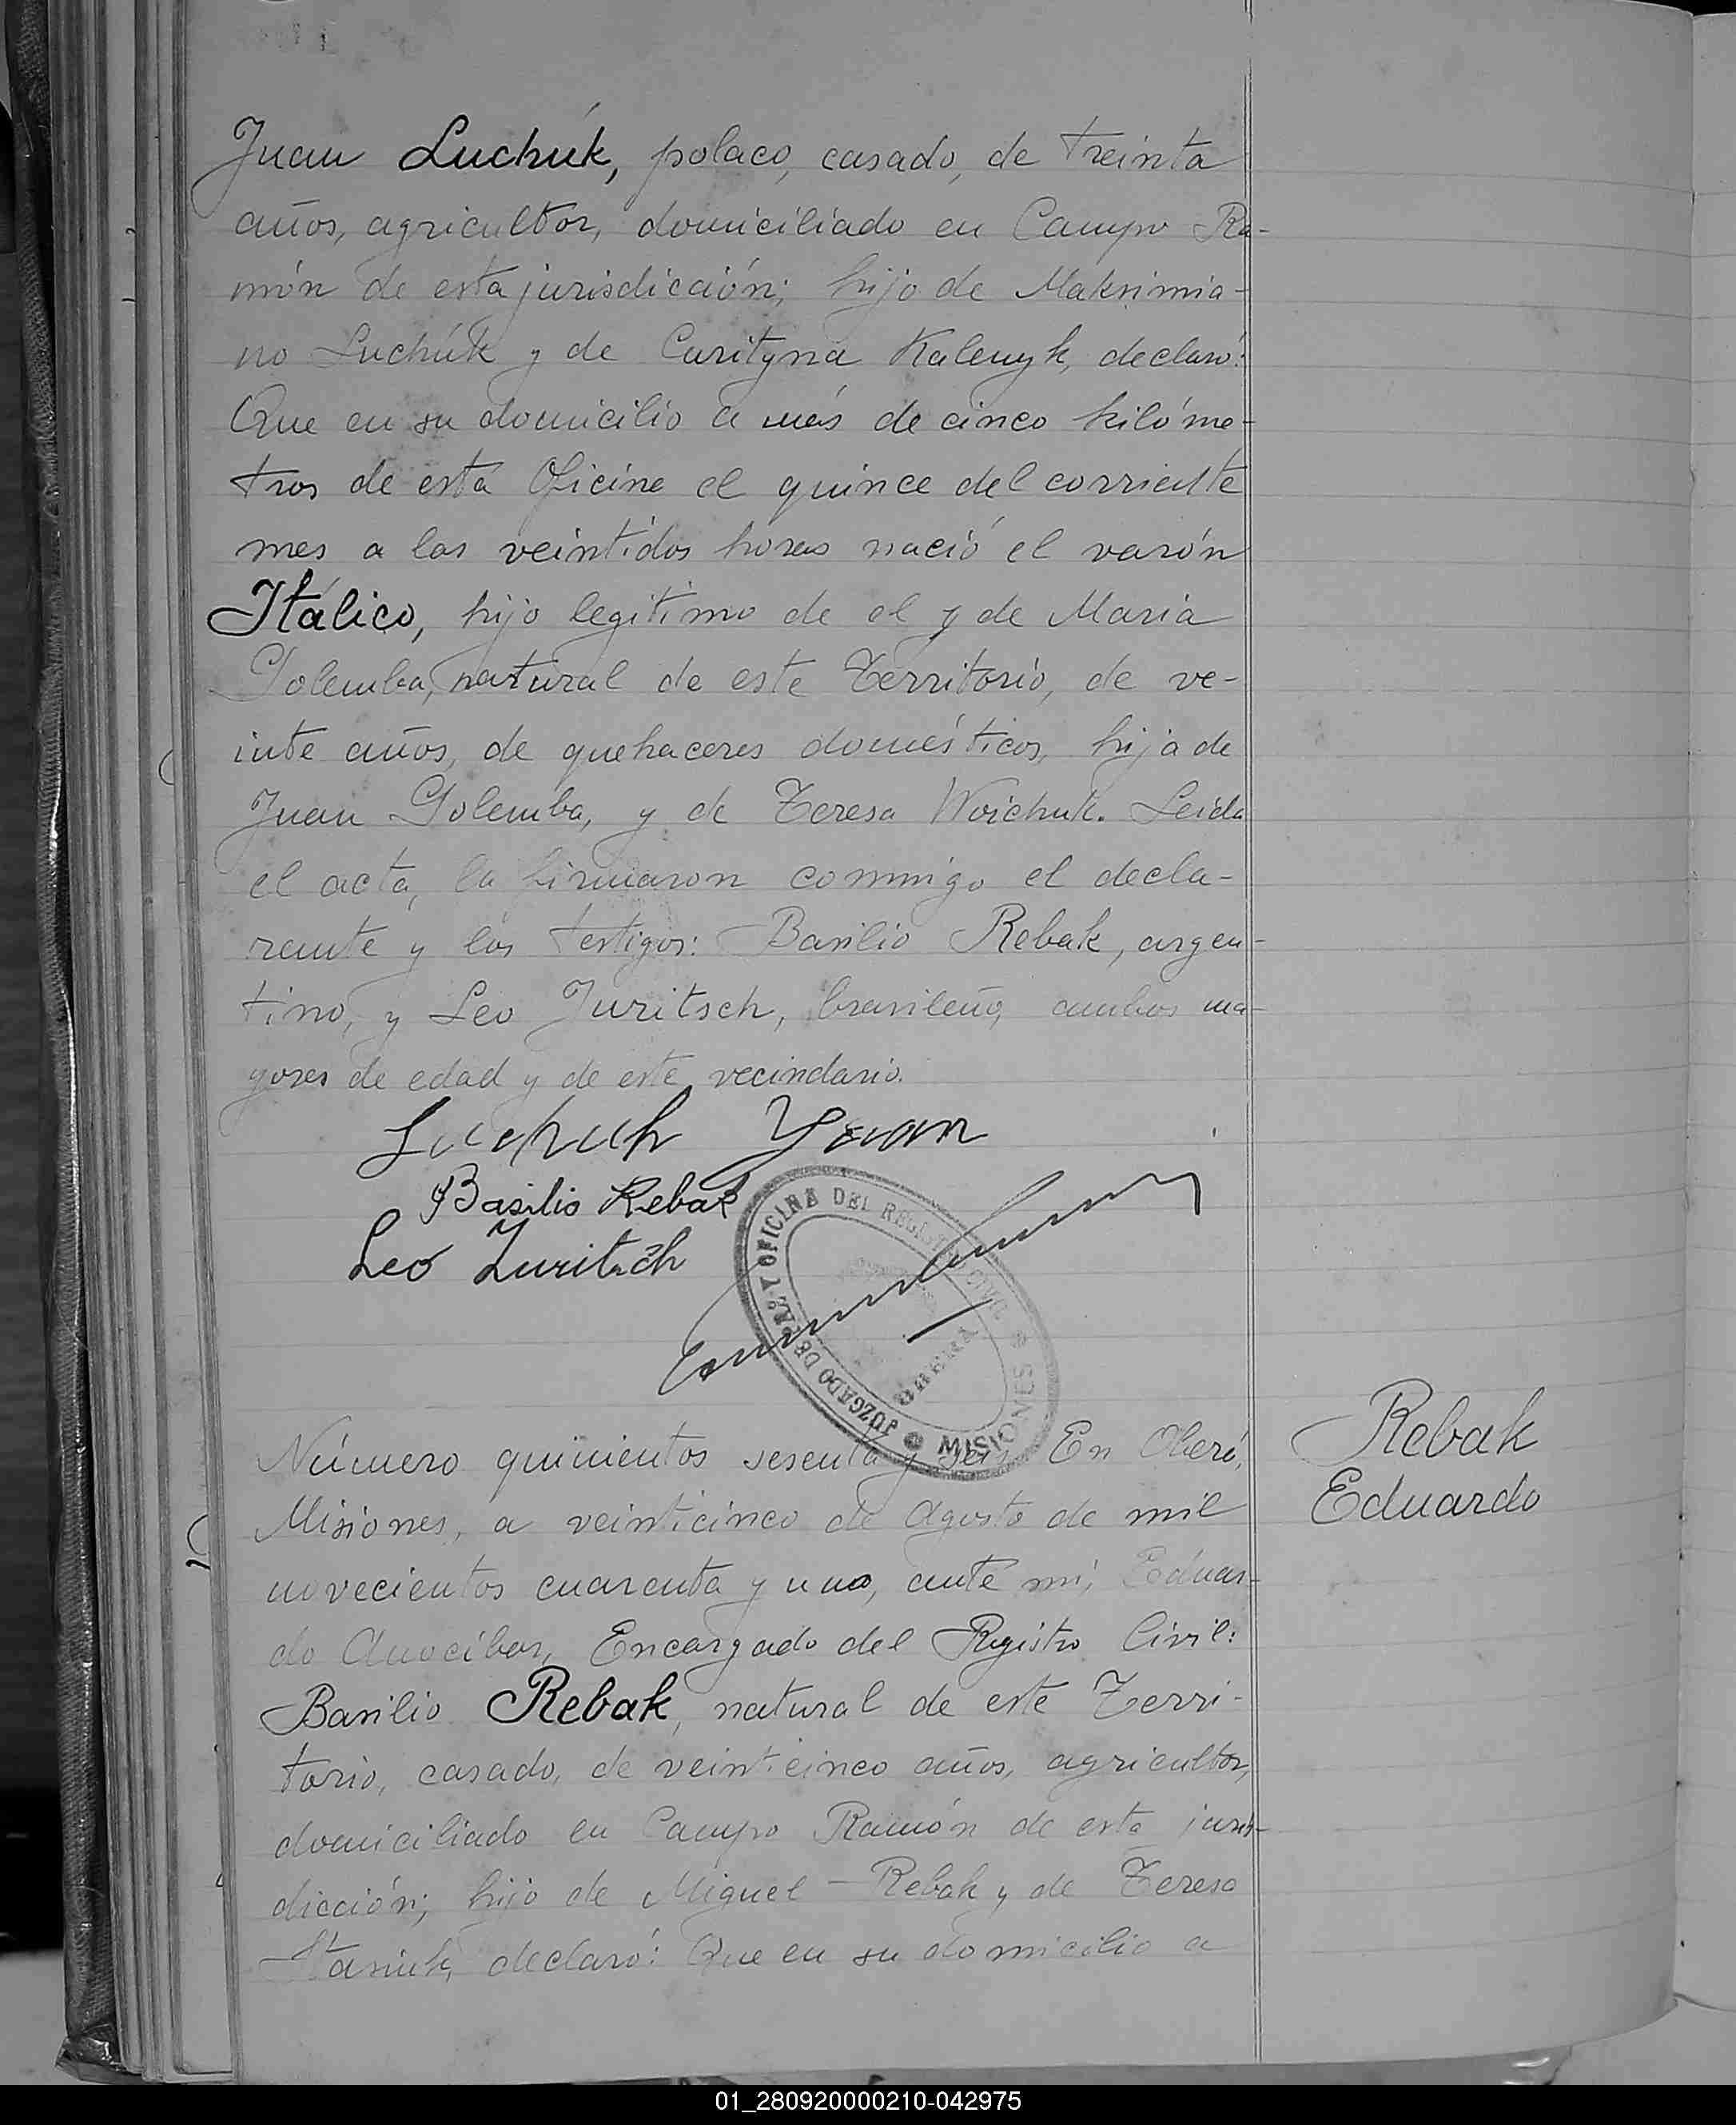 Juan Luchúk, polaco, casado, de treinta
años, agricultor, domiciliado en Campo Ra-
món de esta jurisdicción; hijo de Maksimia-
no Luchúk y de Carityna Kalenyk, declaró:
Que en su domicilio a más de cinco kilóme-
tros de esta Oficina el quince del corriente
mes a las veintidos horas nació el varón
Itálico, hijo legitimo de el y de Maria
Golemba, natural de este Territorio, de ve-
inte años, de quehaceres domésticos, hija de
Juan Golemba, y de Teresa Woichuk. Leida
el acta, la firmaron conmigo el decla-
rante y los testigos: Basilio Rebak, argen-
tino, y Leo Juritsch, brasileño, ambos ma-
yores de edad y de este vecindario.
Luchuk
Basilio Rebak
Leo Juritsch
JUZGADO DE PAZ Y OFICINA DEL REGISTRO CIVIL
OBERA
MISIONES
Número quinientos sesenta y seis. En Oberá,
Misiones, a veinticinco de Agosto de mil
novecientos cuarenta y uno, ante mi, Eduar-
do Anocíbar, Encargado del Registro Civil:
Basilio Rebak, natural de este Terri-
torio, casado, de veinticinco años, agricultor,
domiciliado en Campo Ramón de esta juris-
dicción; hijo de Miguel Rebak y de Teresa
declaró: Que en su domicilio a
Rebak
Eduardo
01_280920000210-042975